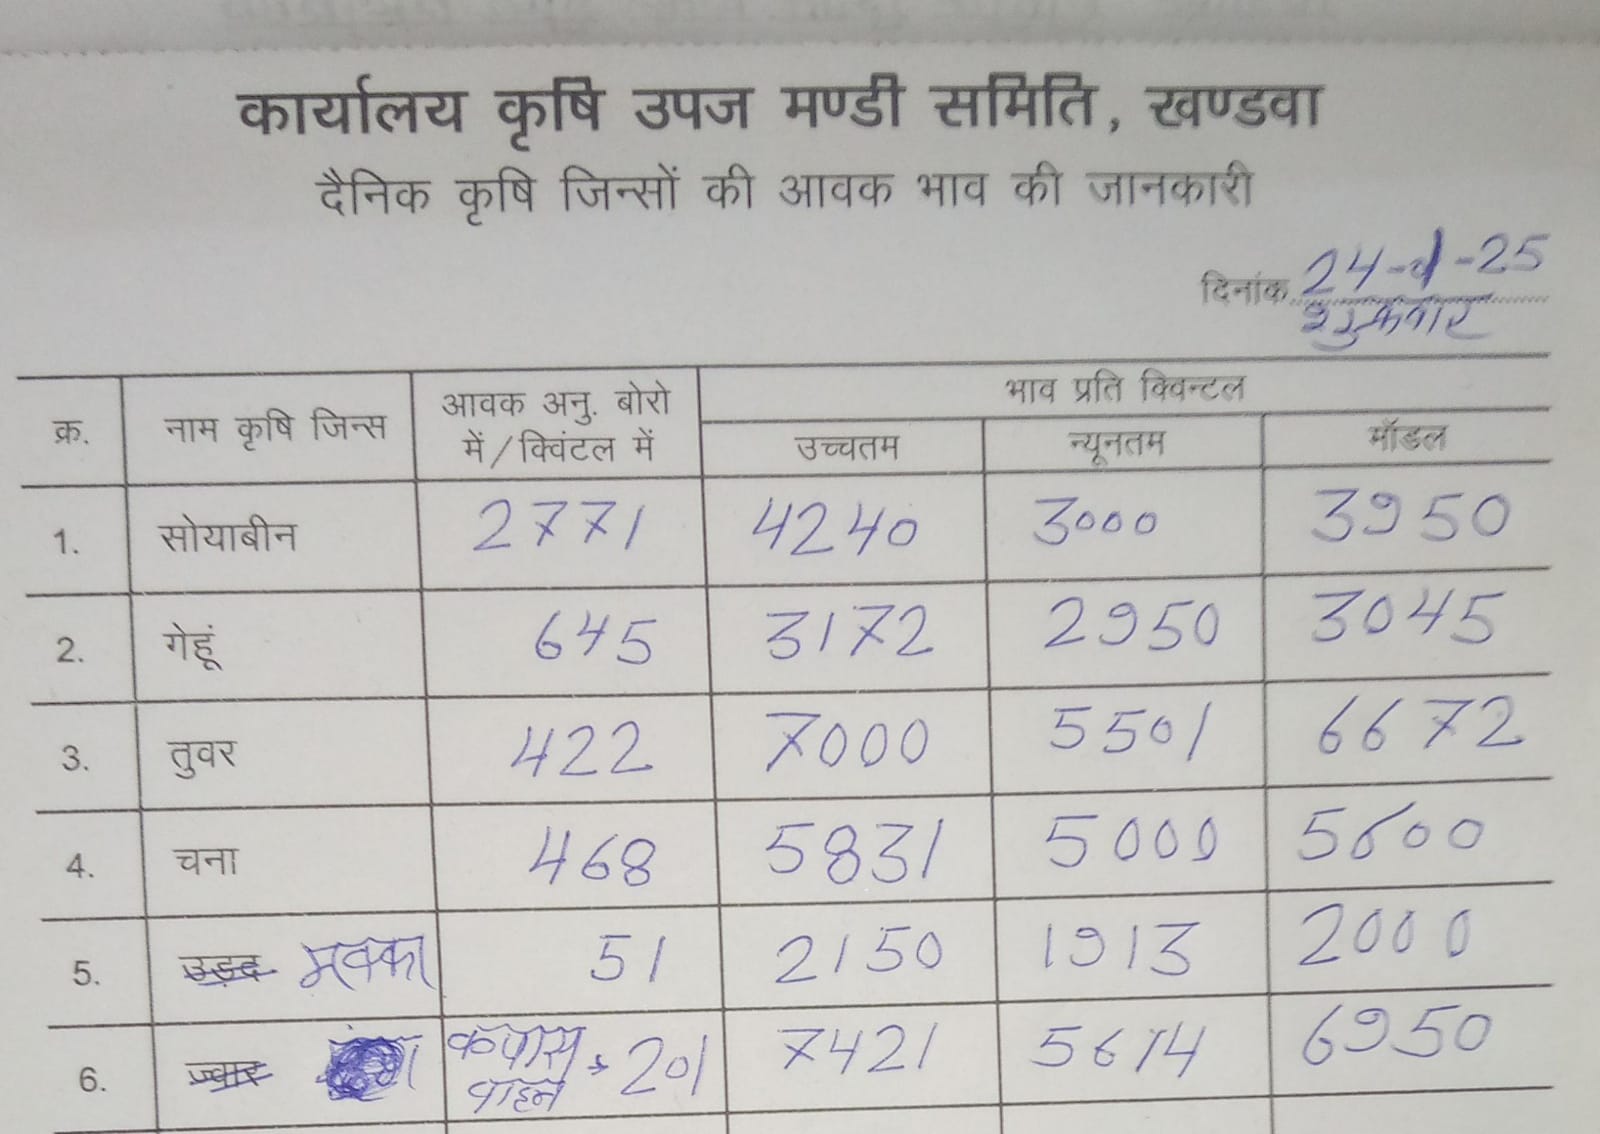 कार्यालय कृषि उपज मण्डी समिति, खण्डवा
दैनिक कृषि जिन्सों की आवक भाव की जानकारी
दिनांक 24-1-25
शुक्रवार
क्र. नाम कृषि जिन्स आवक अनु. बोरो में/क्विंटल में भाव प्रति क्विन्टल
उच्चतम न्यूनतम मॉडल
1. सोयाबीन 2771 4240 3000 3950
2. गेहूं 645 3172 2950 3045
3. तुवर 422 7000 5501 6672
4. चना 468 5831 5000 5600
5. उड़द मक्का 51 2150 1913 2000
6. ज्वार कपास वाहन → 201 7421 5614 6950